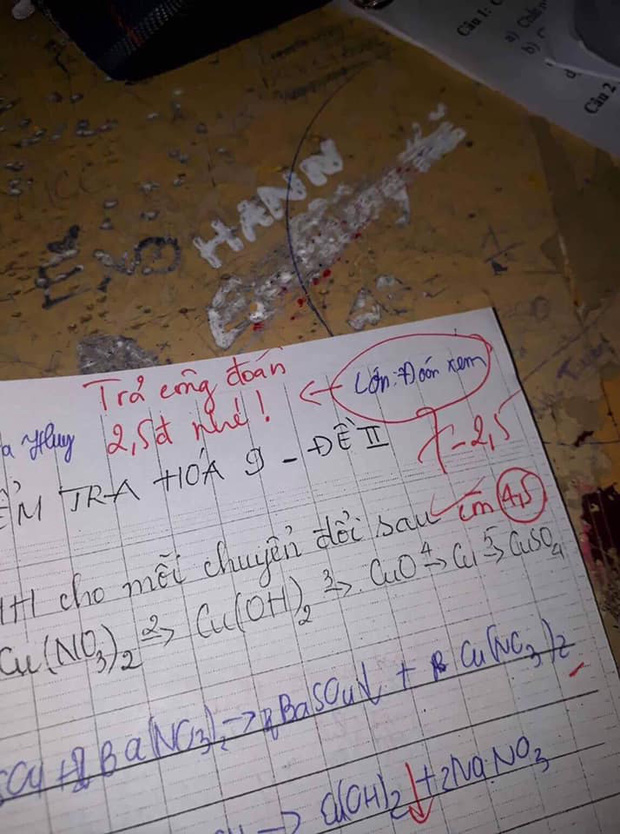 Câu 1: C
a)
b) C
Câu 2
EXO
HANN
Trả công đoán
2,5đ nhé!
← Lớn: Đoán xem
a Huy
7-2,5
ỂM TRA HÓA 9 - ĐỀ II
còn 4,5
TH cho mỗi chuyển đổi sau
Cu(NO3)2 2→ Cu(OH)2 3→ CuO 4→ Cu 5→ CuSO4
Ba(NO3)2 → BaSO4↓ + Cu(NO3)2
→ Cu(OH)2↓ + 2NaNO3